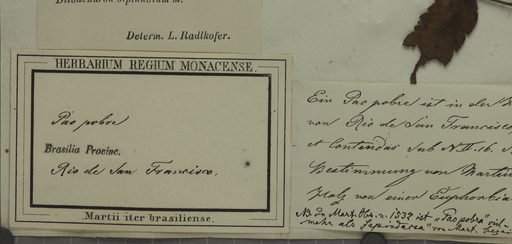 Dilodendron bipinnatum m.
Determ. L. Radlkofer.
HERBARIUM REGIUM MONACENSE.
Pao pobre
Brasilia Provinc.
Rio de San Francisco.
Martii iter brasiliense.
Ein Pao pobre ist in der
von Rio de San Francisco
et Contendas sub N. II. 16.
Bestimmung von Martiu
Holz von einer Euphorbia
NB. In Mart. Obs. n. 1832 ist „Pao pobre" viel-
mehr als „Sapindacea" von Mart.